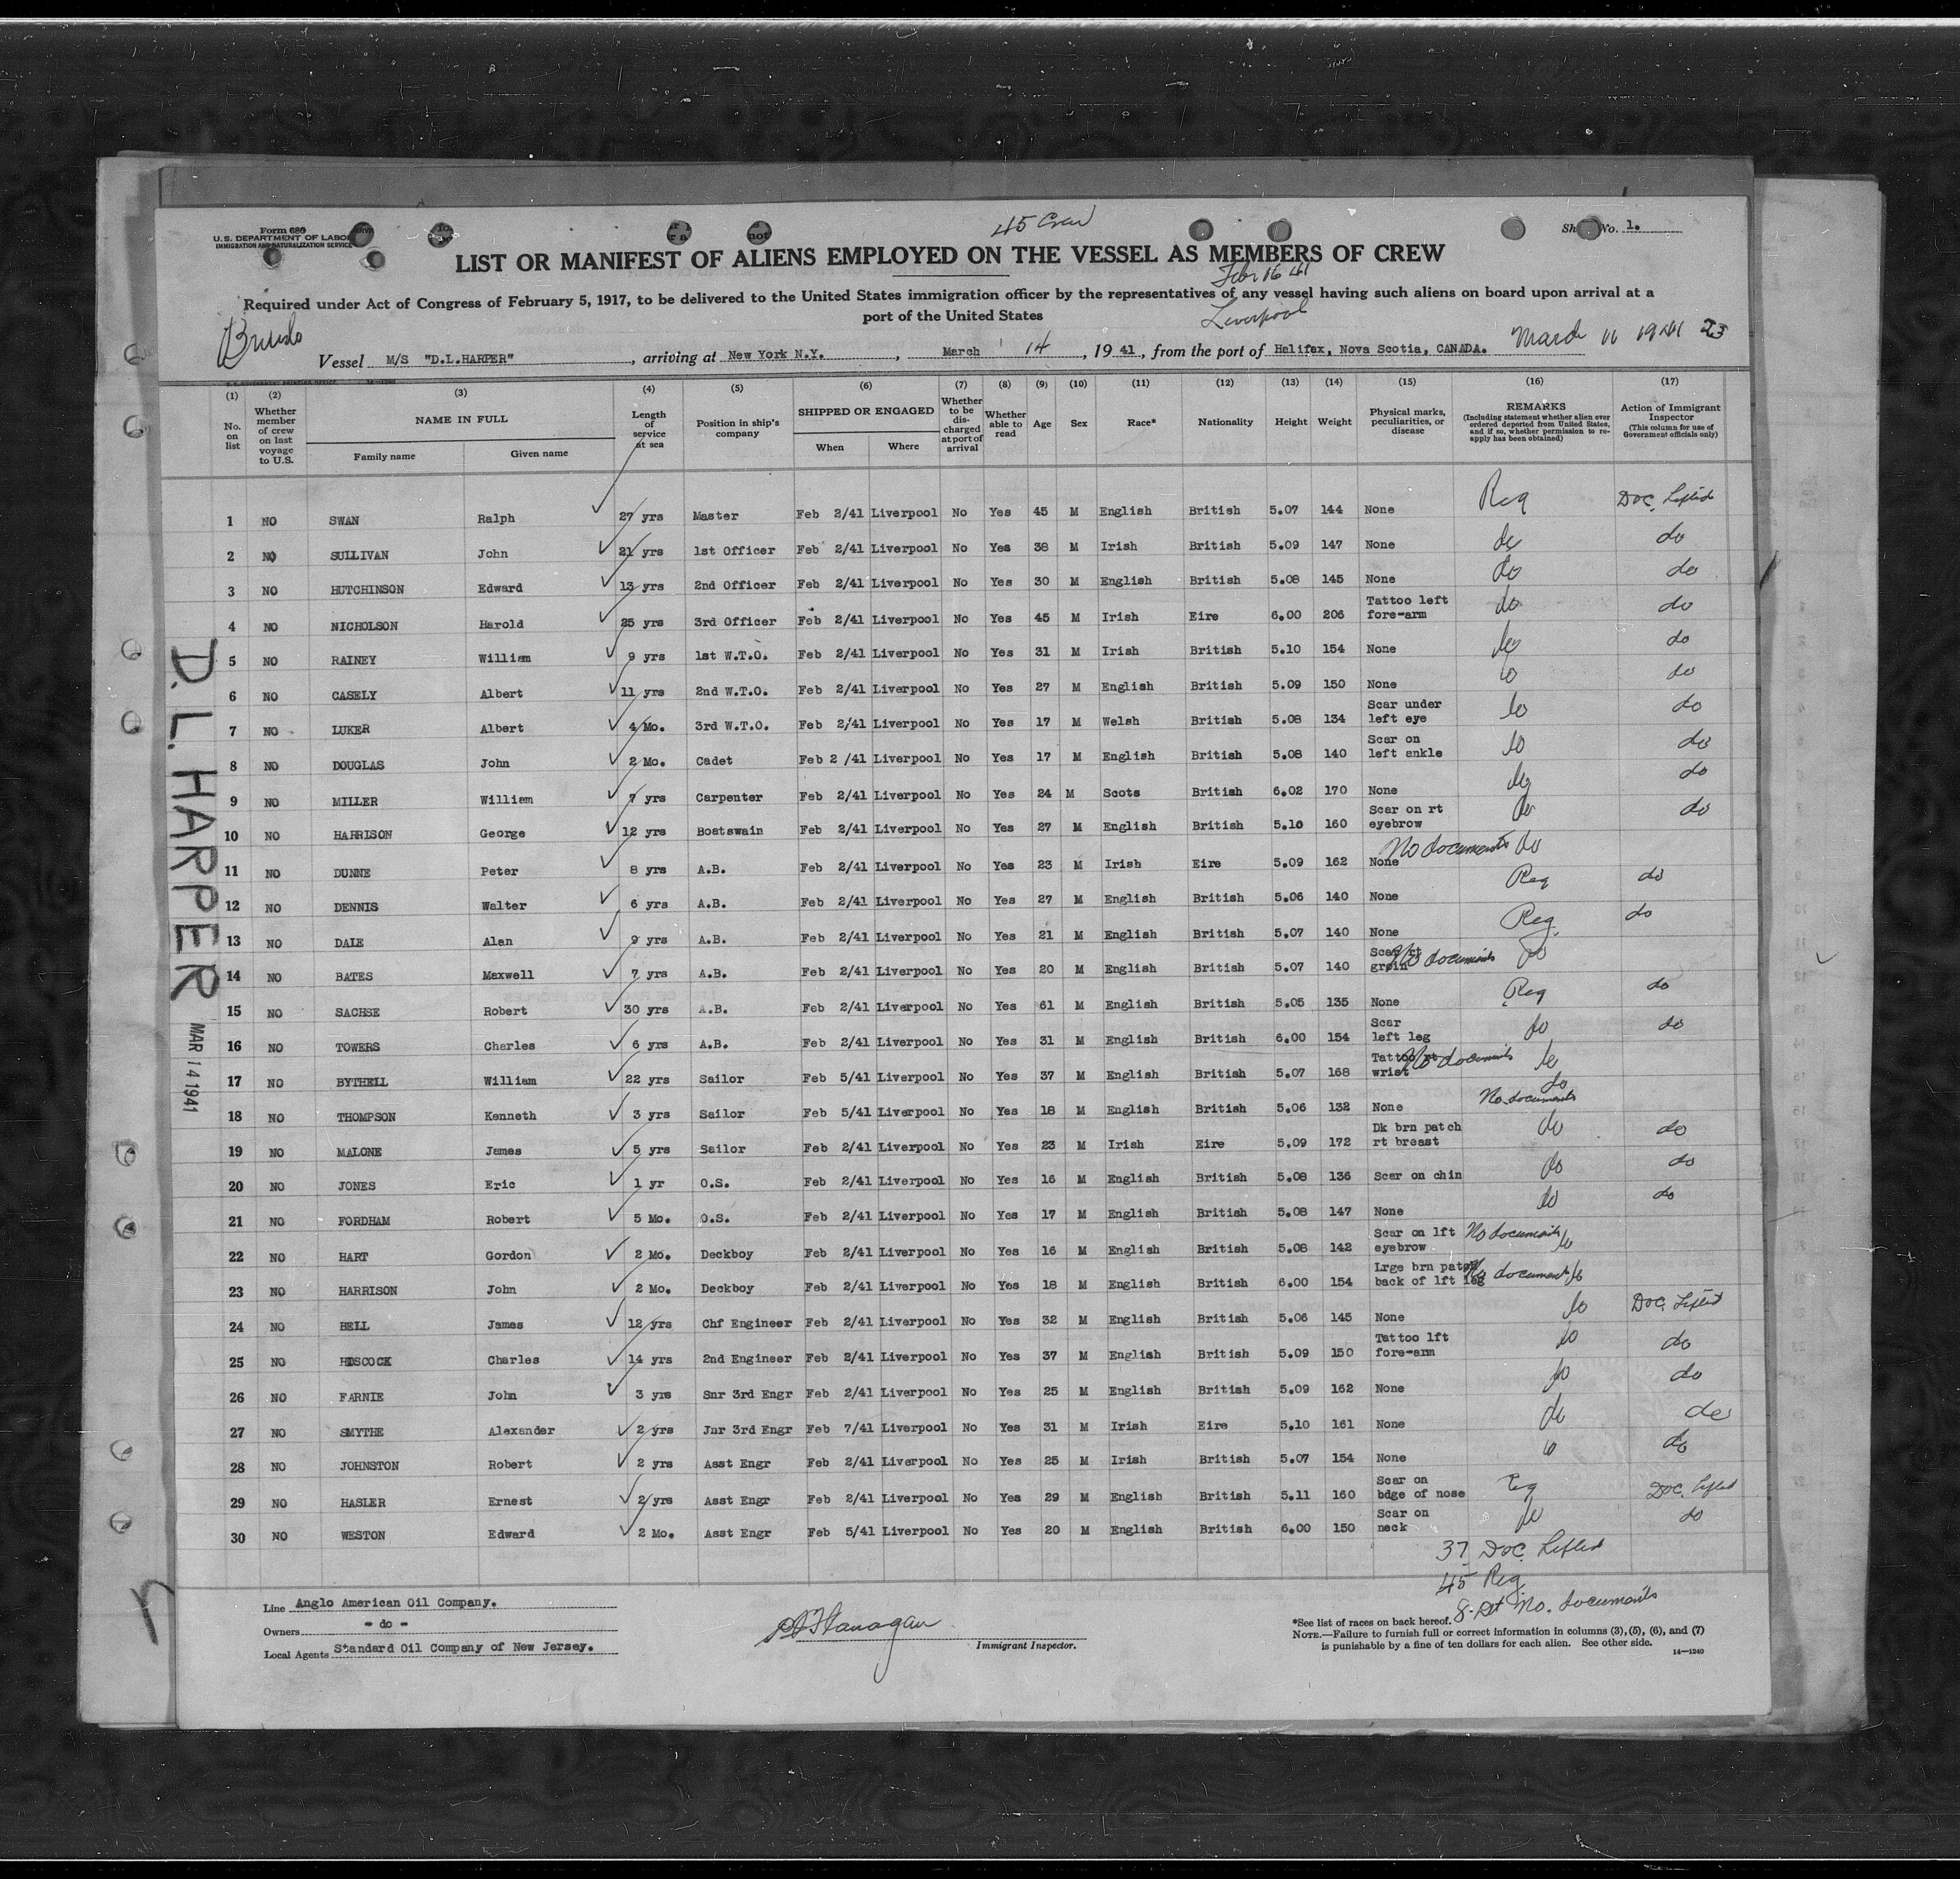 45 Crew
Form 680
U.S. DEPARTMENT OF LABOR
IMMIGRATION AND NATURALIZATION SERVICE
Sheet No. 1.
LIST OR MANIFEST OF ALIENS EMPLOYED ON THE VESSEL AS MEMBERS OF CREW
Febr 16 41
Required under Act of Congress of February 5, 1917, to be delivered to the United States immigration officer by the representatives of any vessel having such aliens on board upon arrival at a
port of the United States
Liverpool
Vessel M/S "D.L.HARPER", arriving at New York N.Y., March 14, 1941, from the port of Halifax, Nova Scotia, CANADA. March 11 1941 23
(1) No. on list
(2) Whether member of crew on last voyage to U.S.
(3) NAME IN FULL Family name Given name
(4) Length of service at sea
(5) Position in ship's company
(6) SHIPPED OR ENGAGED When Where
(7) Whether to be discharged at port of arrival
(8) Whether able to read
(9) Age
(10) Sex
(11) Race*
(12) Nationality
(13) Height
(14) Weight
(15) Physical marks, peculiarities, or disease
(16) REMARKS (Including statement whether alien ever ordered deported from United States, and if so, whether permission to reapply has been obtained)
(17) Action of Immigrant Inspector (This column for use of Government officials only)
1 NO SWAN Ralph 27 yrs Master Feb 2/41 Liverpool No Yes 45 M English British 5.07 144 None Reg Doc. Lifted
2 NO SULLIVAN John 21 yrs 1st Officer Feb 2/41 Liverpool No Yes 38 M Irish British 5.09 147 None do do
3 NO HUTCHINSON Edward 13 yrs 2nd Officer Feb 2/41 Liverpool No Yes 30 M English British 5.08 145 None do do
4 NO NICHOLSON Harold 25 yrs 3rd Officer Feb 2/41 Liverpool No Yes 45 M Irish Eire 6.00 206 Tattoo left fore-arm do do
5 NO RAINEY William 9 yrs 1st W.T.O. Feb 2/41 Liverpool No Yes 31 M Irish British 5.10 154 None do do
6 NO CASELY Albert 11 yrs 2nd W.T.O. Feb 2/41 Liverpool No Yes 27 M English British 5.09 150 None do do
7 NO LUKER Albert 4 Mo. 3rd W.T.O. Feb 2/41 Liverpool No Yes 17 M Welsh British 5.08 134 Scar under left eye do do
8 NO DOUGLAS John 2 Mo. Cadet Feb 2 /41 Liverpool No Yes 17 M English British 5.08 140 Scar on left ankle do do
9 NO MILLER William 7 yrs Carpenter Feb 2/41 Liverpool No Yes 24 M Scots British 6.02 170 None do do
10 NO HARRISON George 12 yrs Boatswain Feb 2/41 Liverpool No Yes 27 M English British 5.10 160 Scar on rt eyebrow do do
11 NO DUNNE Peter 8 yrs A.B. Feb 2/41 Liverpool No Yes 23 M Irish Eire 5.09 162 None No documents do
12 NO DENNIS Walter 6 yrs A.B. Feb 2/41 Liverpool No Yes 27 M English British 5.06 140 None Reg do
13 NO DALE Alan 9 yrs A.B. Feb 2/41 Liverpool No Yes 21 M English British 5.07 140 None Reg. do
14 NO BATES Maxwell 7 yrs A.B. Feb 2/41 Liverpool No Yes 20 M English British 5.07 140 Scar rt groin No documents do
15 NO SACHSE Robert 30 yrs A.B. Feb 2/41 Liverpool No Yes 61 M English British 5.05 135 None Reg do
16 NO TOWERS Charles 6 yrs A.B. Feb 2/41 Liverpool No Yes 31 M English British 6.00 154 Scar left leg do do
17 NO BYTHELL William 22 yrs Sailor Feb 5/41 Liverpool No Yes 37 M English British 5.07 168 Tattoo rt wrist No documents do
18 NO THOMPSON Kenneth 3 yrs Sailor Feb 5/41 Liverpool No Yes 18 M English British 5.06 132 None No documents do
19 NO MALONE James 5 yrs Sailor Feb 2/41 Liverpool No Yes 23 M Irish Eire 5.09 172 Dk brn patch rt breast do do
20 NO JONES Eric 1 yr O.S. Feb 2/41 Liverpool No Yes 16 M English British 5.08 136 Scar on chin do do
21 NO FORDHAM Robert 5 Mo. O.S. Feb 2/41 Liverpool No Yes 17 M English British 5.08 147 None do do
22 NO HART Gordon 2 Mo. Deckboy Feb 2/41 Liverpool No Yes 16 M English British 5.08 142 Scar on lft eyebrow No documents do
23 NO HARRISON John 2 Mo. Deckboy Feb 2/41 Liverpool No Yes 18 M English British 6.00 154 Lrge brn patch back of lft leg No documents do
24 NO BELL James 12 yrs Chf Engineer Feb 2/41 Liverpool No Yes 32 M English British 5.06 145 None do Doc. Lifted
25 NO HISCOCK Charles 14 yrs 2nd Engineer Feb 2/41 Liverpool No Yes 37 M English British 5.09 150 Tattoo lft fore-arm do do
26 NO FARNIE John 3 yrs Snr 3rd Engr Feb 2/41 Liverpool No Yes 25 M English British 5.09 162 None do do
27 NO SMYTHE Alexander 2 yrs Jnr 3rd Engr Feb 7/41 Liverpool No Yes 31 M Irish Eire 5.10 161 None do do
28 NO JOHNSTON Robert 2 yrs Asst Engr Feb 2/41 Liverpool No Yes 25 M Irish British 5.07 154 None do do
29 NO HASLER Ernest 2 yrs Asst Engr Feb 2/41 Liverpool No Yes 29 M English British 5.11 160 Scar on bdge of nose Reg Doc. Lifted
30 NO WESTON Edward 2 Mo. Asst Engr Feb 5/41 Liverpool No Yes 20 M English British 6.00 150 Scar on neck do do
D. L. HARPER
MAR 14 1941
37 Doc. Lifted
45 Reg
8 No. documents
Line Anglo American Oil Company.
Owners - do -
Local Agents Standard Oil Company of New Jersey.
Flanagan
Immigrant Inspector.
*See list of races on back hereof.
NOTE.—Failure to furnish full or correct information in columns (3), (5), (6), and (7)
is punishable by a fine of ten dollars for each alien. See other side.
14—1240